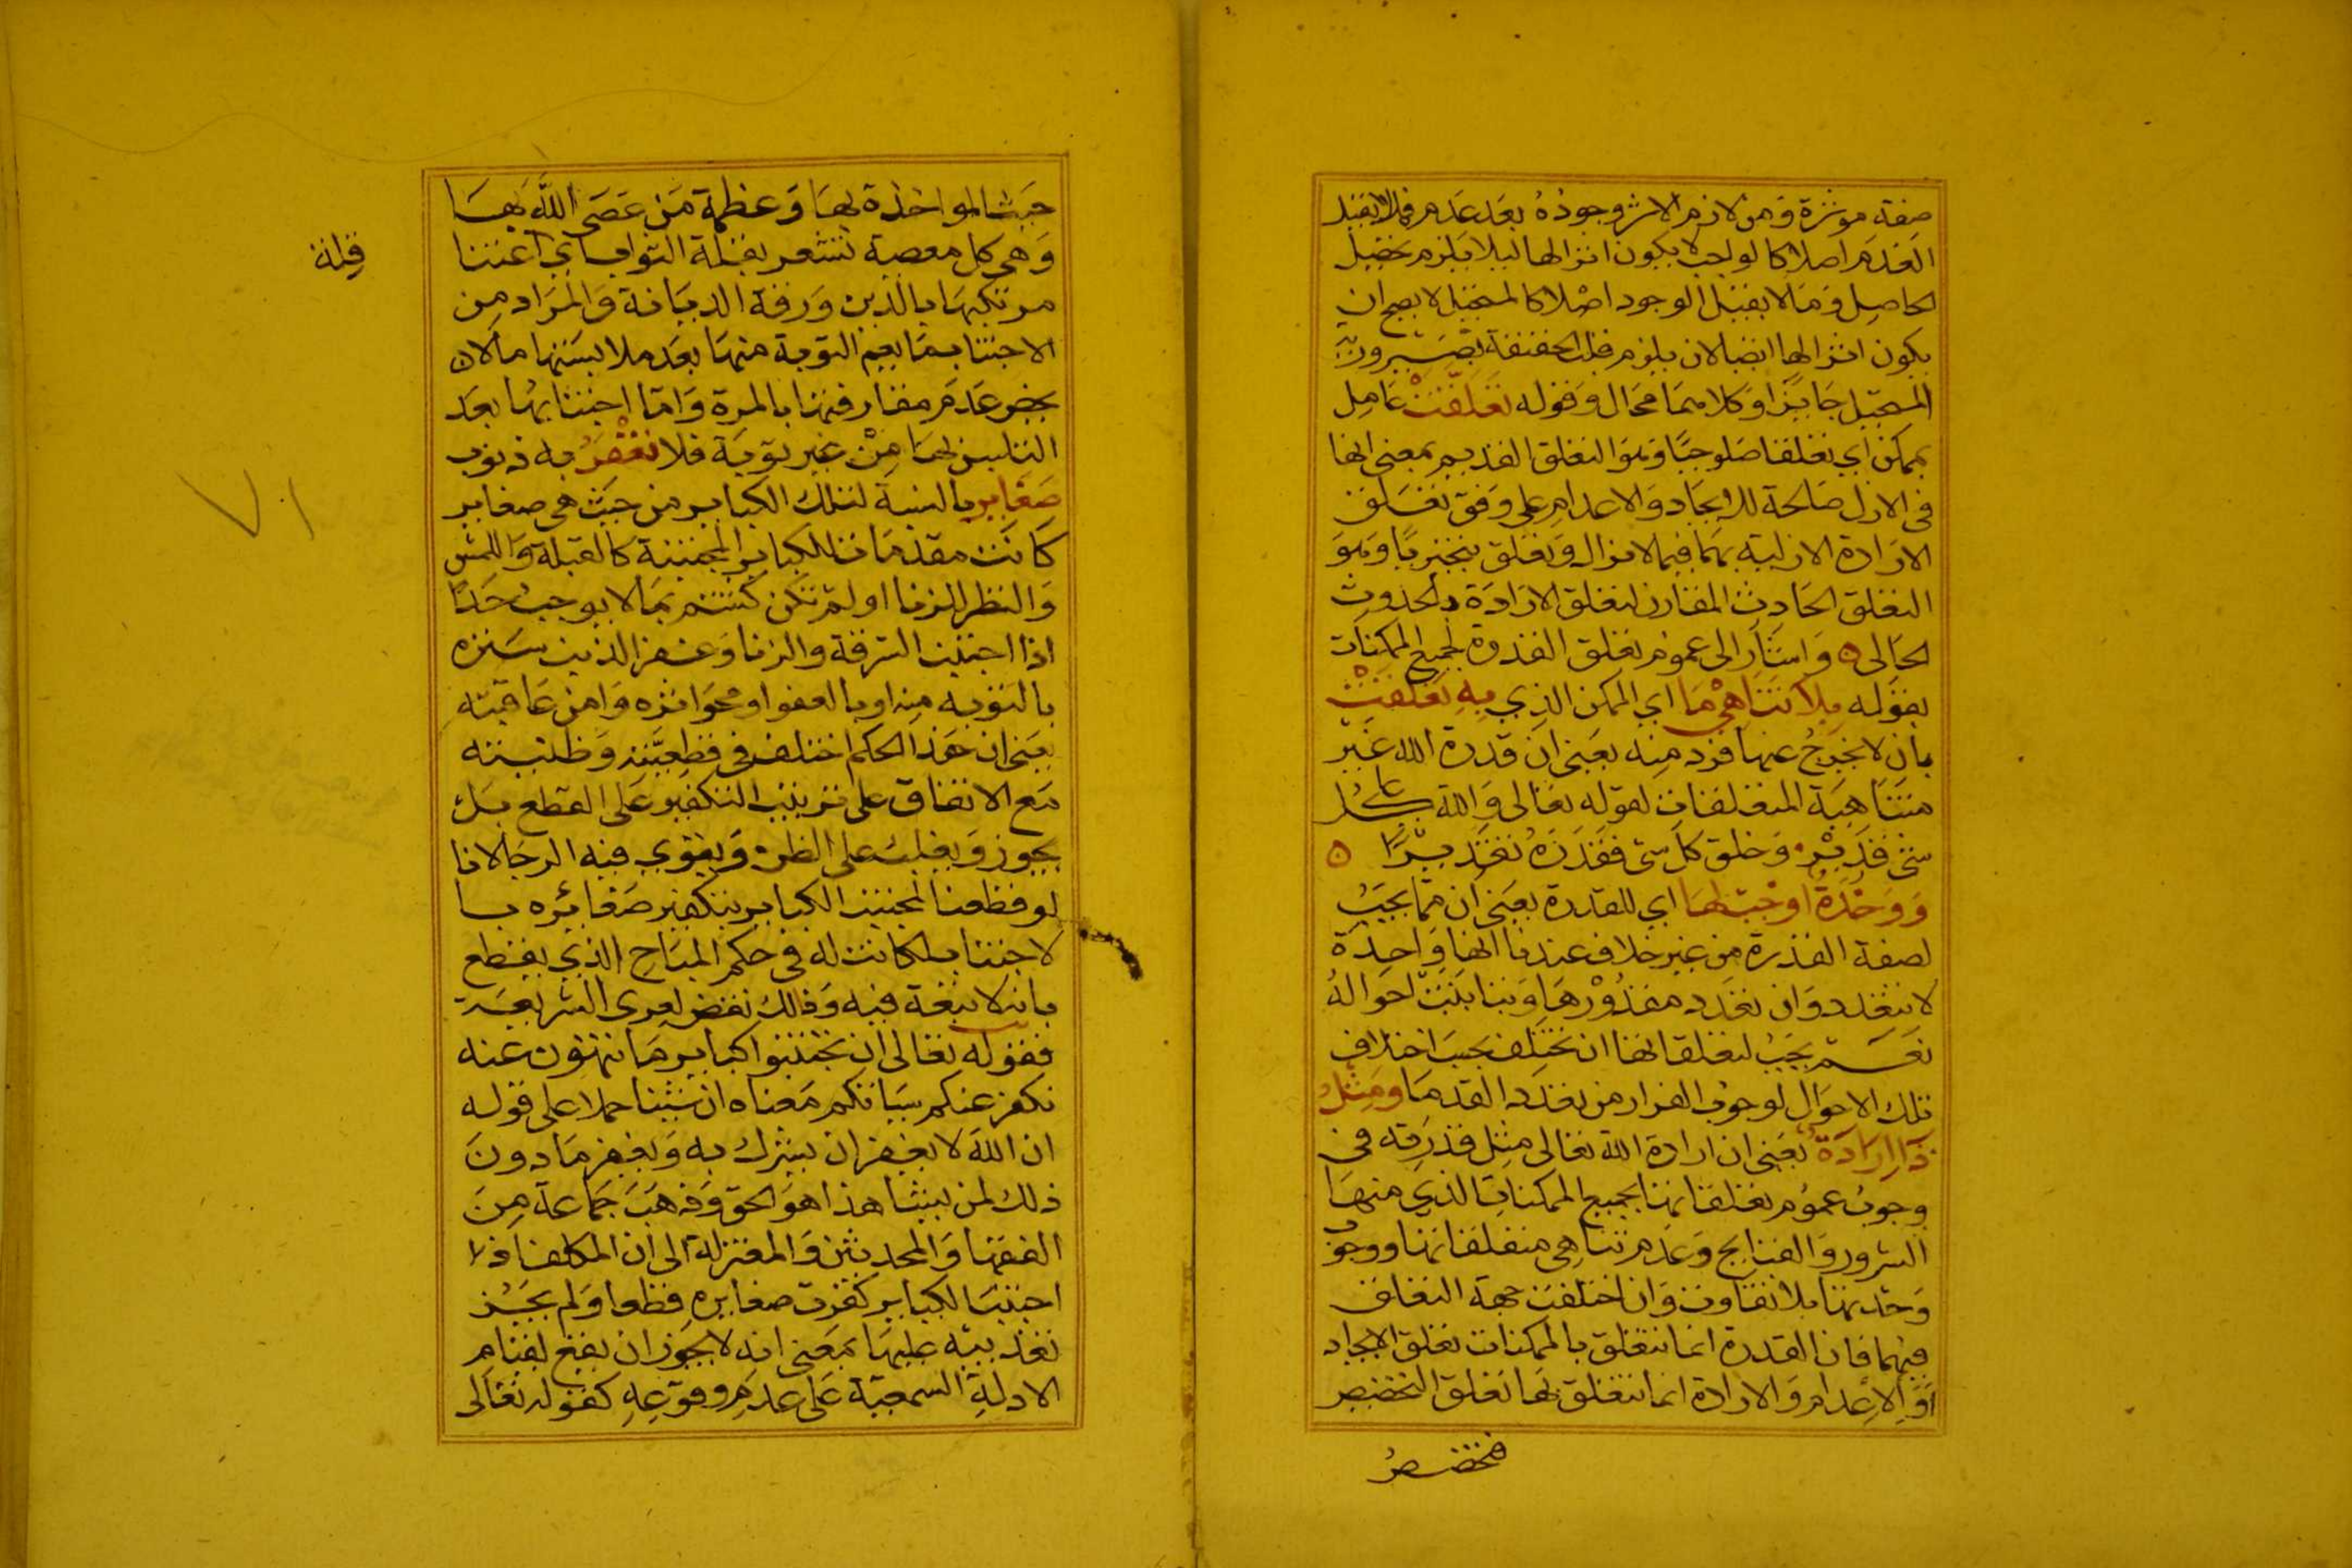 صفة موثرة ومن لازم الاثر وجوده بعد عدم فما لا يقبل
العدم اصلا كالواجب لا يكون اثرا لها ليلا يلزم تحصيل
الحاصل وما لا يقبل الوجود اصلا كالمستحيل لا يصح ان
يكون اثرا لها ايضا لان يلزم قلب الحقيقة بصيرورة
المستحيل جايزا وكلاهما محال وقوله تعلقت عامل
بممكن اي تعلقا صلوحيا وهو التعلق القديم بمعنى انها
في الازل صالحة للايجاد والاعدام على وفق تعلق
الارادة الازلية بهما فيما لا يزال وتعلق تنجيزيا وهو
التعلق الحادث المقارن لتعلق الارادة بالحدوث
الحالى ٥ واشار الى عموم تعلق القدرة لجميع الممكنات
بقوله بلا تناهي ما اي الممكن الذي به تعلقت
بان لا يخرج عنها فرد منه يعني ان قدرة الله غير
متناهية المتعلقات لقوله تعالى والله على كل
شي قدير وخلق كل شي فقدره تقديرا ٥
ووحدة اوجب لها اي للقدرة يعني ان مما يجب
لصفة القدرة من غير خلاف عندنا انها واحدة
لا تتعدد وان تعدد مقدورها وتباينت احواله
نعم يجب لتعلقاتها ان تختلف بحسب اختلاف
تلك الاحوال لوجوب الفرار من تعدد القدما ومثل
ذي ارادة يعني ان ارادة الله تعالى مثل قدرته في
وجوب عموم تعلقاتها بجميع الممكنات الذي منها
الشرور والقبايح وعدم تناهي متعلقاتها ووجوب
وحدتها بلا تفاوت وان اختلفت جهة التعلق
فيهما فان القدرة انما تتعلق بالممكنات تعلق الايجاد
او الاعدام والارادة انما تتعلق بها تعلق التخصيص
فتخصيص
حيث المواخذة بها وعظمة من عصى الله بها
وهي كل معصية تشعر بقلة اكتراث
قلة
مرتكبها بالدين ورقة الديانة والمراد من
الاجتناب ما يعم التوبة منها بعد ملابستها ما لان
يخص عدم مقارفتها بالمرة واما اجتنابها بعد
التلبس لها من غير توبة فلا تغفر به ذنوب
صغاير بالنسبة لتلك الكباير من حيث هي صغاير
كانت مقدمات للكباير المجتنبة كالقبلة واللمس
والنظر للزنا او لم تكن كشتم بما لا يوجب حدا
اذا اجتنب السرقة والزنا وغفر الذنب ستره
بالتوبة منه او بالعفو او محو اثره وامن عاقبته
يعني ان هذا الحكم اختلف في قطعيته وظنيته
مع الاتفاق على ترتيب التكفير على القطع بل
يجوز ويغلب على الظن ويقوي فيه الرجا لانا
لو قطعنا لمجتنب الكباير بتكفير صغائره با
لاجتناب لكانت له في حكم المباح الذي يقطع
بانه لا تبعة فيه وذلك نقض لعرى الشريعة
فقوله تعالى ان تجتنبوا كباير ما تنهون عنه
نكفر عنكم سياتكم معناه ان شئنا حملا على قوله
ان الله لا يغفر ان يشرك به ويغفر ما دون
ذلك لمن يشا هذا هو الحق وذهب جماعة من
الفقها والمحدثين والمعتزلة الى ان المكلف اذا
اجتنب الكباير كفرت صغايره قطعا ولم يجز
تعذيبه عليها بمعنى انه لا يجوز ان يقع لقيام
الادلة السمعية على عدم وقوعه كقوله تعالى
٧١